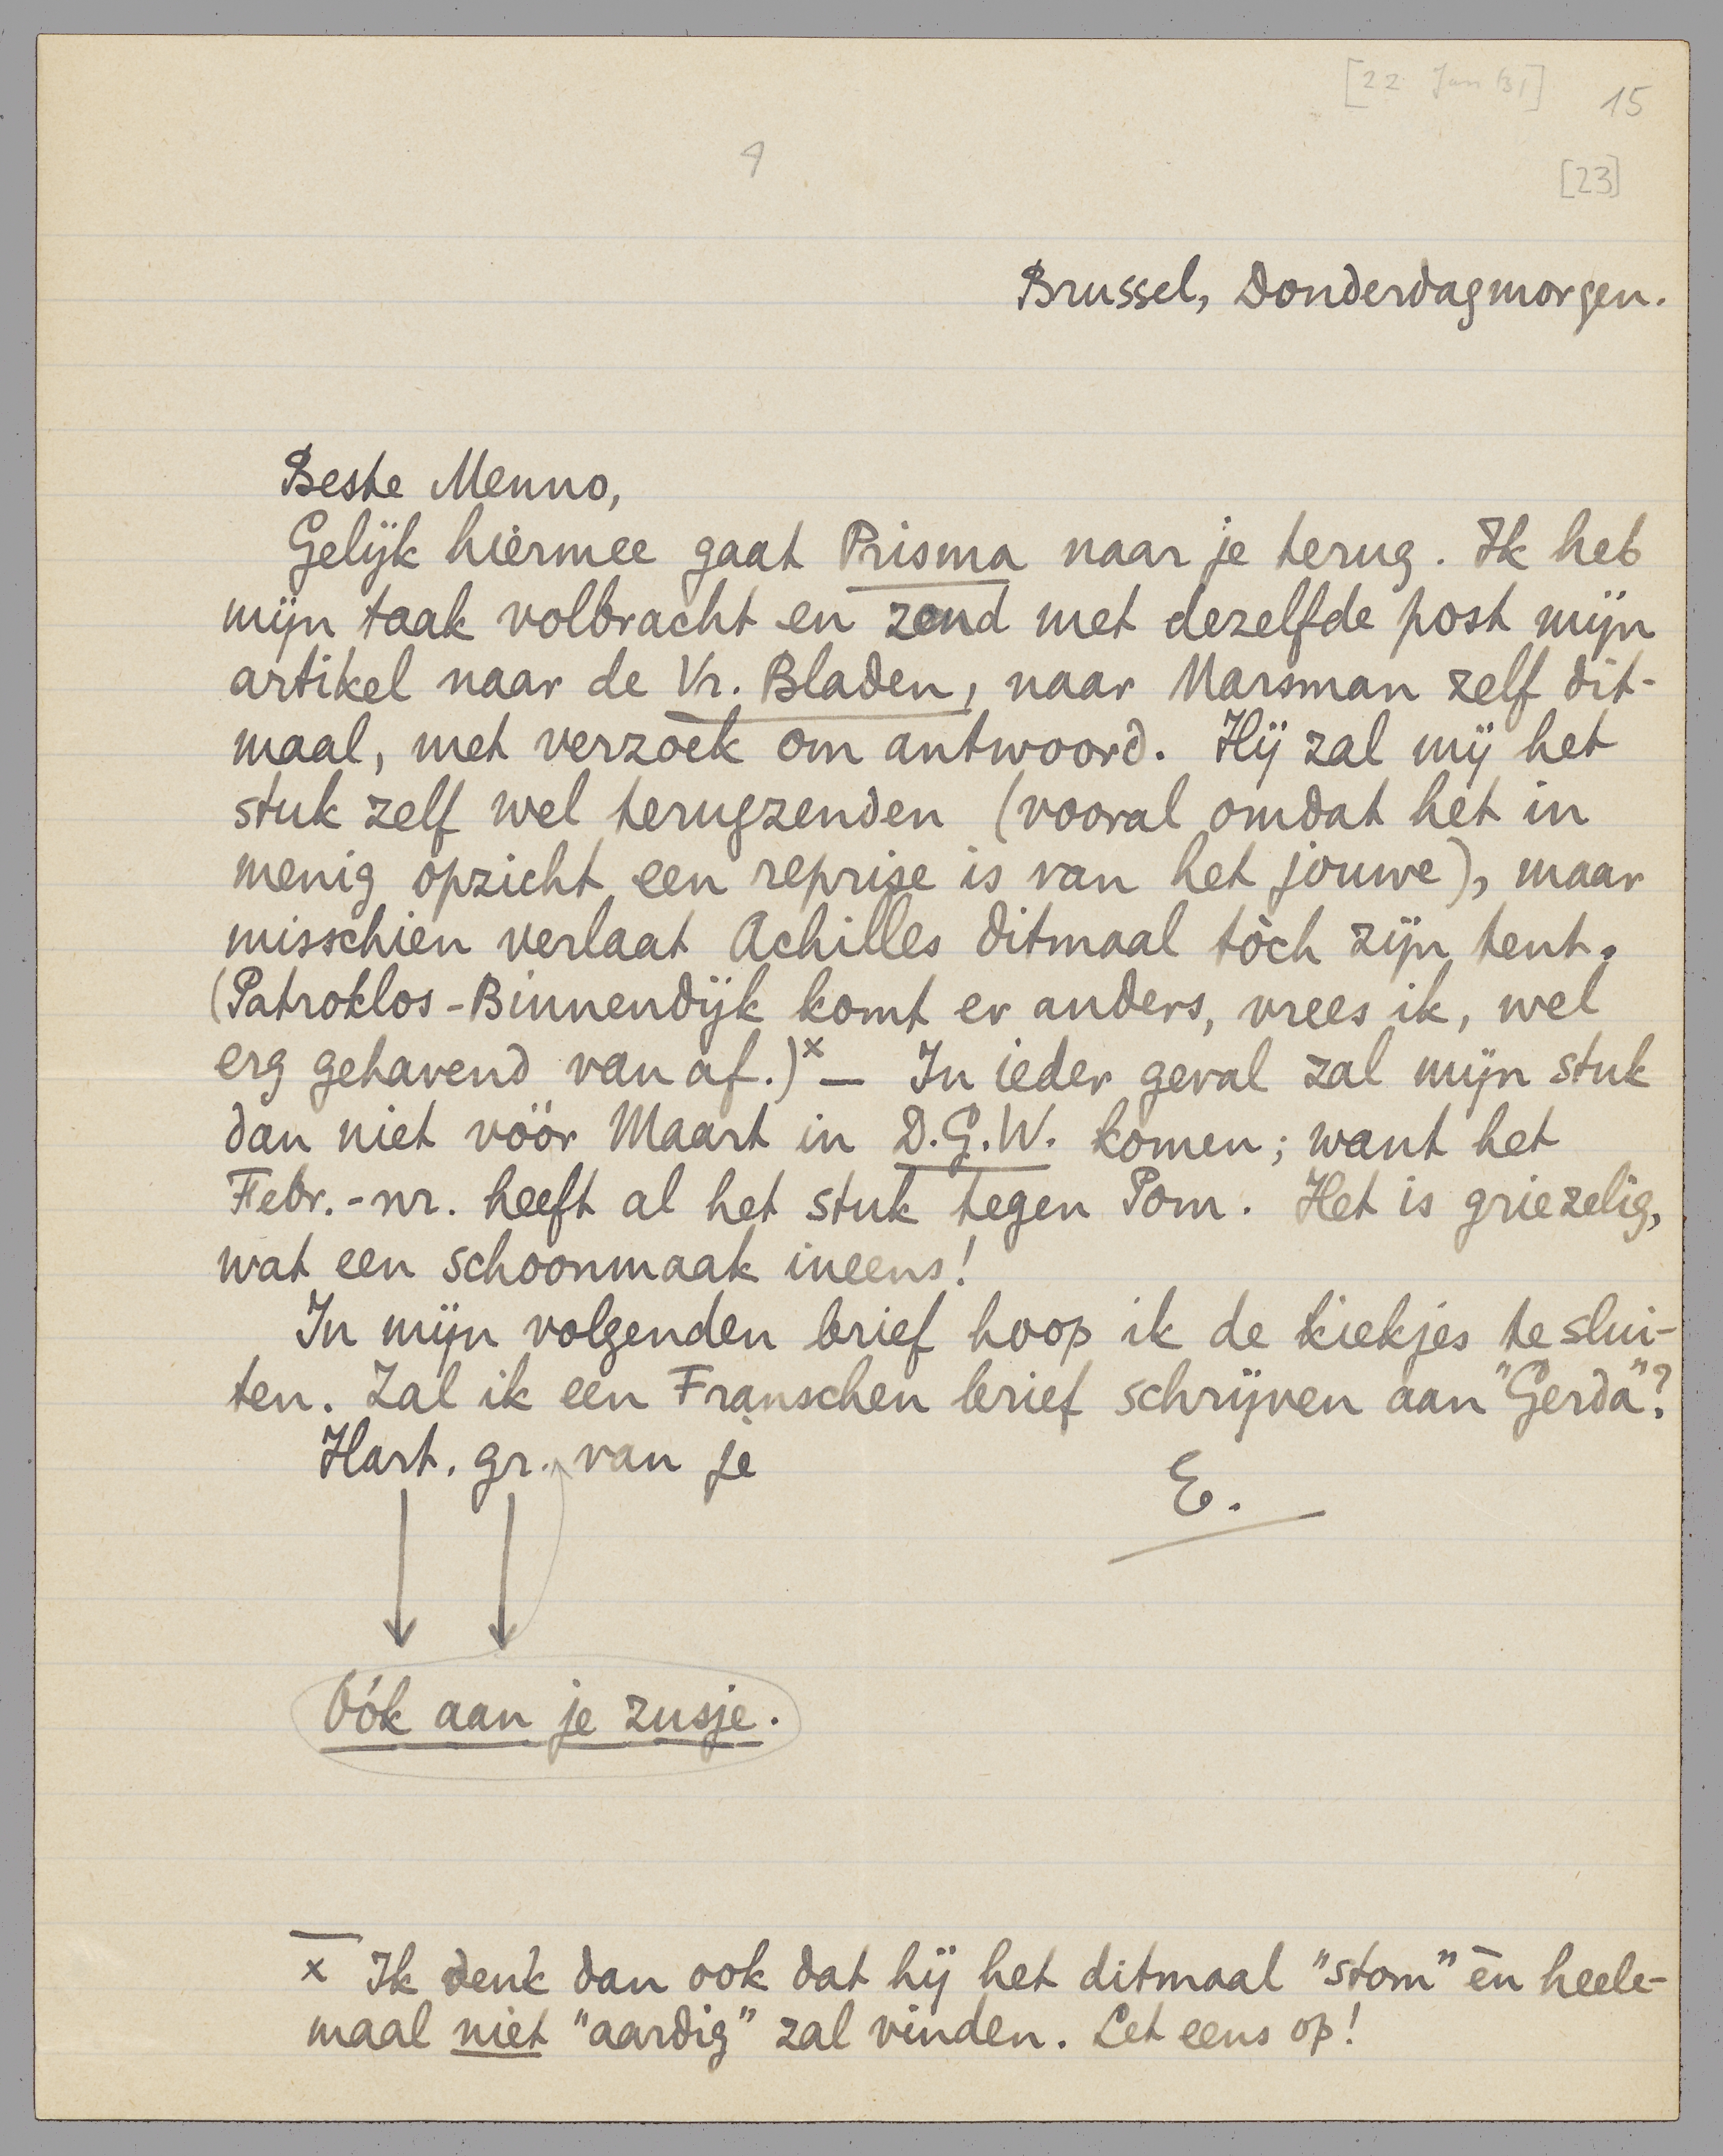 [22 Jan 31]
15
[23]
Brussel, Donderdagmorgen.
Beste Menno,
Gelijk hiermee gaat Prisma naar je terug. Ik heb
mijn taak volbracht en zend met dezelfde post mijn
artikel naar de Vr. Bladen, naar Marsman zelf dit-
maal, met verzoek om antwoord. Hij zal mij het
stuk zelf wel terugzenden (vooral omdat het in
menig opzicht een reprise is van het jouwe), maar
misschien verlaat Achilles ditmaal tòch zijn tent.
(Patroklos-Binnendijk komt er anders, vrees ik, wel
erg gehavend van af.)x — In ieder geval zal mijn stuk
dan niet vóór Maart in D.G.W. komen; want het
Febr.-nr. heeft al het stuk tegen Pom. Het is griezelig,
wat een schoonmaak ineens!
In mijn volgenden brief hoop ik de kiekjes te slui-
ten. Zal ik een Franschen brief schrijven aan "Gerda"?
Hart. gr. van je
E.
Oók aan je zusje.
x Ik denk dan ook dat hij het ditmaal "stom" èn heele-
maal niet "aardig" zal vinden. Let eens op!